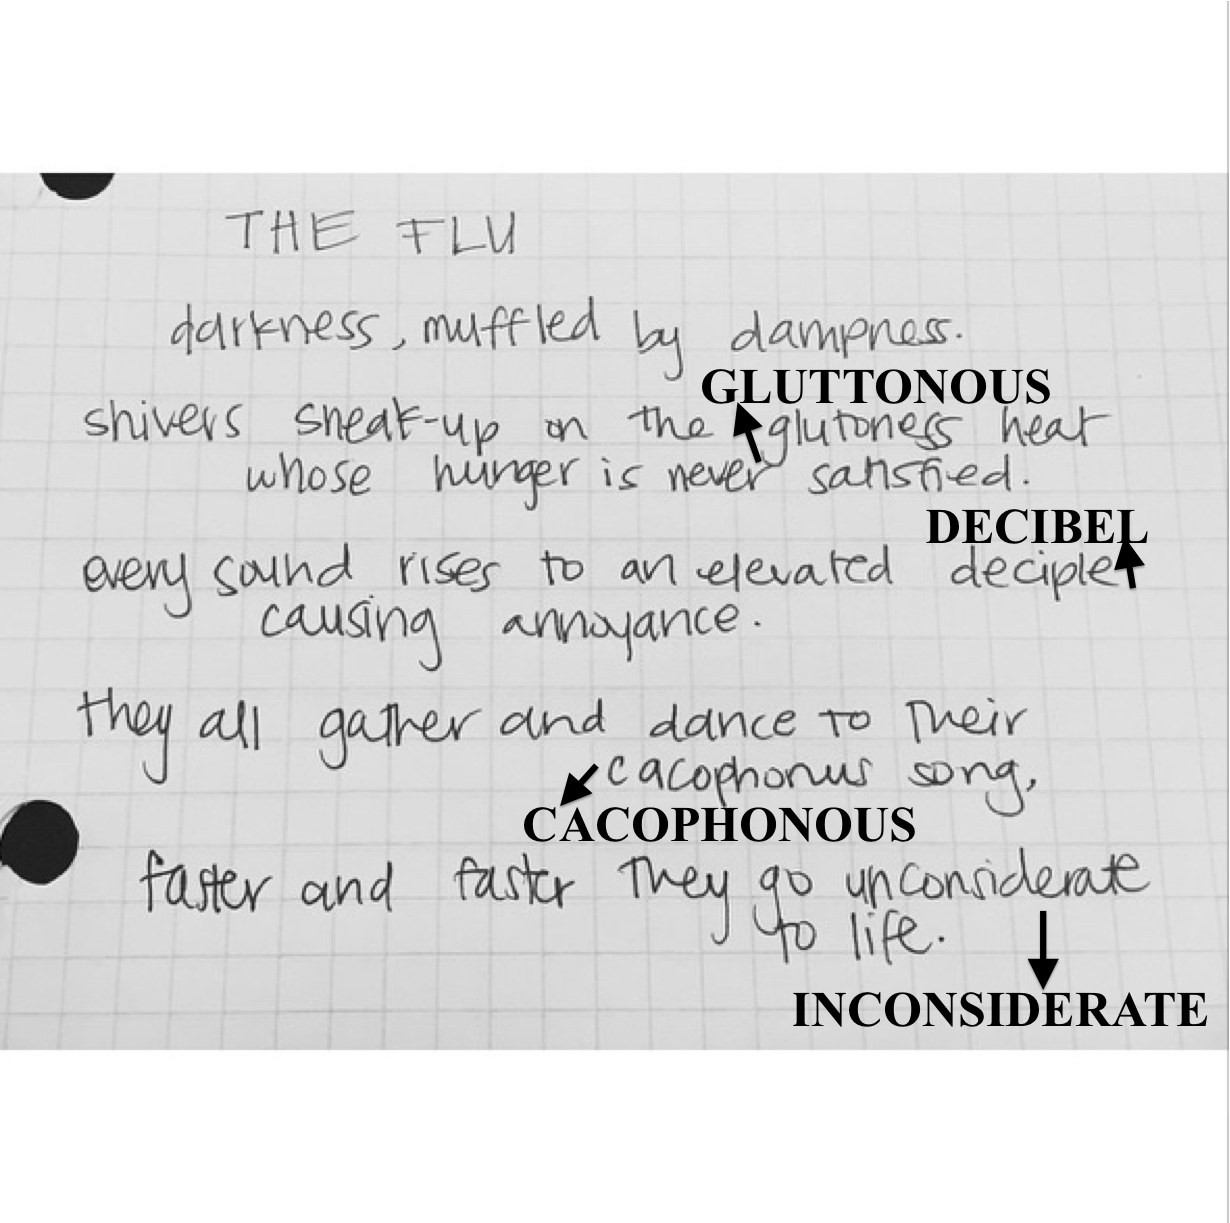 THE FLU
darkness, muffled by dampness.
GLUTTONOUS
shivers sneak-up on the glutoness heat
whose hunger is never satisfied.
DECIBEL
every sound rises to an elevated deciple
causing annoyance.
they all gather and dance to their
cacophonus song,
CACOPHONOUS
faster and faster they go unconsiderate
to life.
INCONSIDERATE